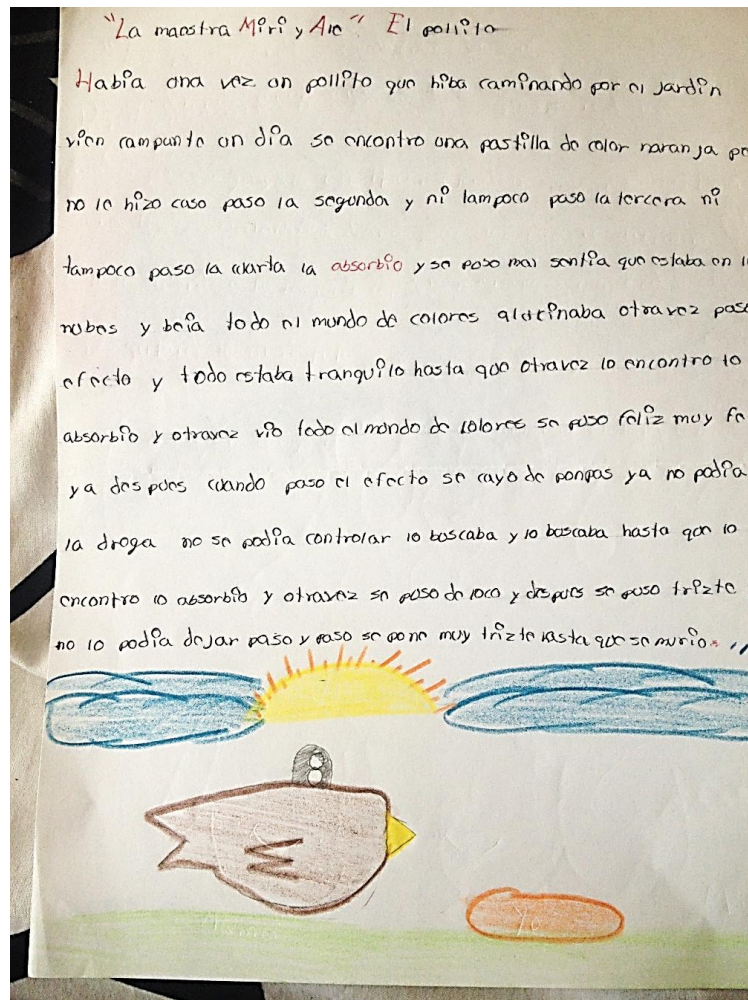 "La maestra Miri y Ale" El pollito
Había una vez un pollito que hiba caminando por el Jardín
vien campante un día se encontro una pastilla de color naranja pe
no le hizo caso paso la segunda y ni tampoco paso la tercera ni
tampoco paso la cuarta la absorbio y se puso mas sentia que estaba en l
nubes y beia todo el mundo de colores alucinaba otravez paso
efecto y todo estaba tranquilo hasta que otravez lo encontro lo
absorbio y otravez vio todo el mundo de colores se puso feliz muy fe
ya despues cuando paso el efecto se cayo de pompas ya no podia
la droga no se podia controlar lo buscaba y lo buscaba hasta que lo
encontro lo absorbio y otravez se puso de loco y despues se puso trizte
no lo podia dejar paso y paso se pone muy trizte hasta que se murio.